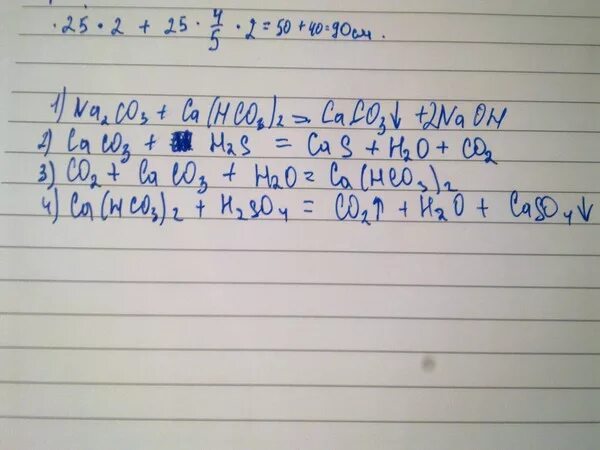 · 25 · 2 + 25 · 4/5 · 2 = 50 + 40 = 90 см.
1) Na₂CO₃ + Ca(HCO₃)₂ = CaCO₃↓ + 2NaOH
2) CaCO₃ + H₂S = CaS + H₂O + CO₂
3) CO₂ + CaCO₃ + H₂O = Ca(HCO₃)₂
4) Ca(HCO₃)₂ + H₂SO₄ = CO₂↑ + H₂O + CaSO₄↓